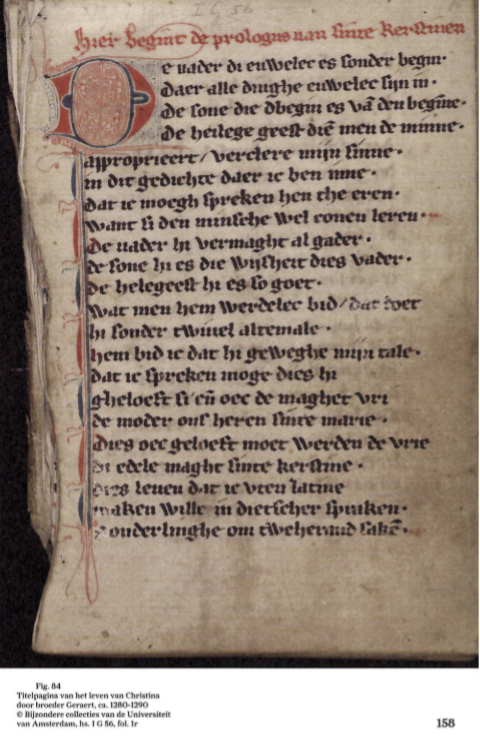 I G 56
hier begint de prologus uan sinte kerstinen
De uader di euwelec es sonder begin·
Daer alle dinghe euwelec sijn in·
De sone die dbegin es vā den begine·
De heilege geest diē men de minne·
approprieert/ verclere mijn sinne·
in dit gedichte daer ic ben inne·
dat ic moegh spreken hen the eren·
want si den minsche wel conen leren·
De uader hi vermaght al gader·
de sone hi es die wijsheit dies vader·
de helegeest hi es so goet·
wat men hem werdelec bid/ dat doet
hi sonder twiuel altemale·
hem bid ic dat hi geweghe mijn tale·
dat ic spreken moge dies hi
gheloeft si eñ oec de maghet vri
de moder ons heren sinte marie·
Dies oec geloeft moet werden de vrie
di edele maght sinte kerstine·
dies leuen dat ic vten latine
maken wille in dietscher spraken·
sonderlinghe om tweherande sakē·
Fig. 84
Titelpagina van het leven van Christina
door broeder Geraert, ca. 1280-1290
© Bijzondere collecties van de Universiteit
van Amsterdam, hs. I G 56, fol. 1r
158